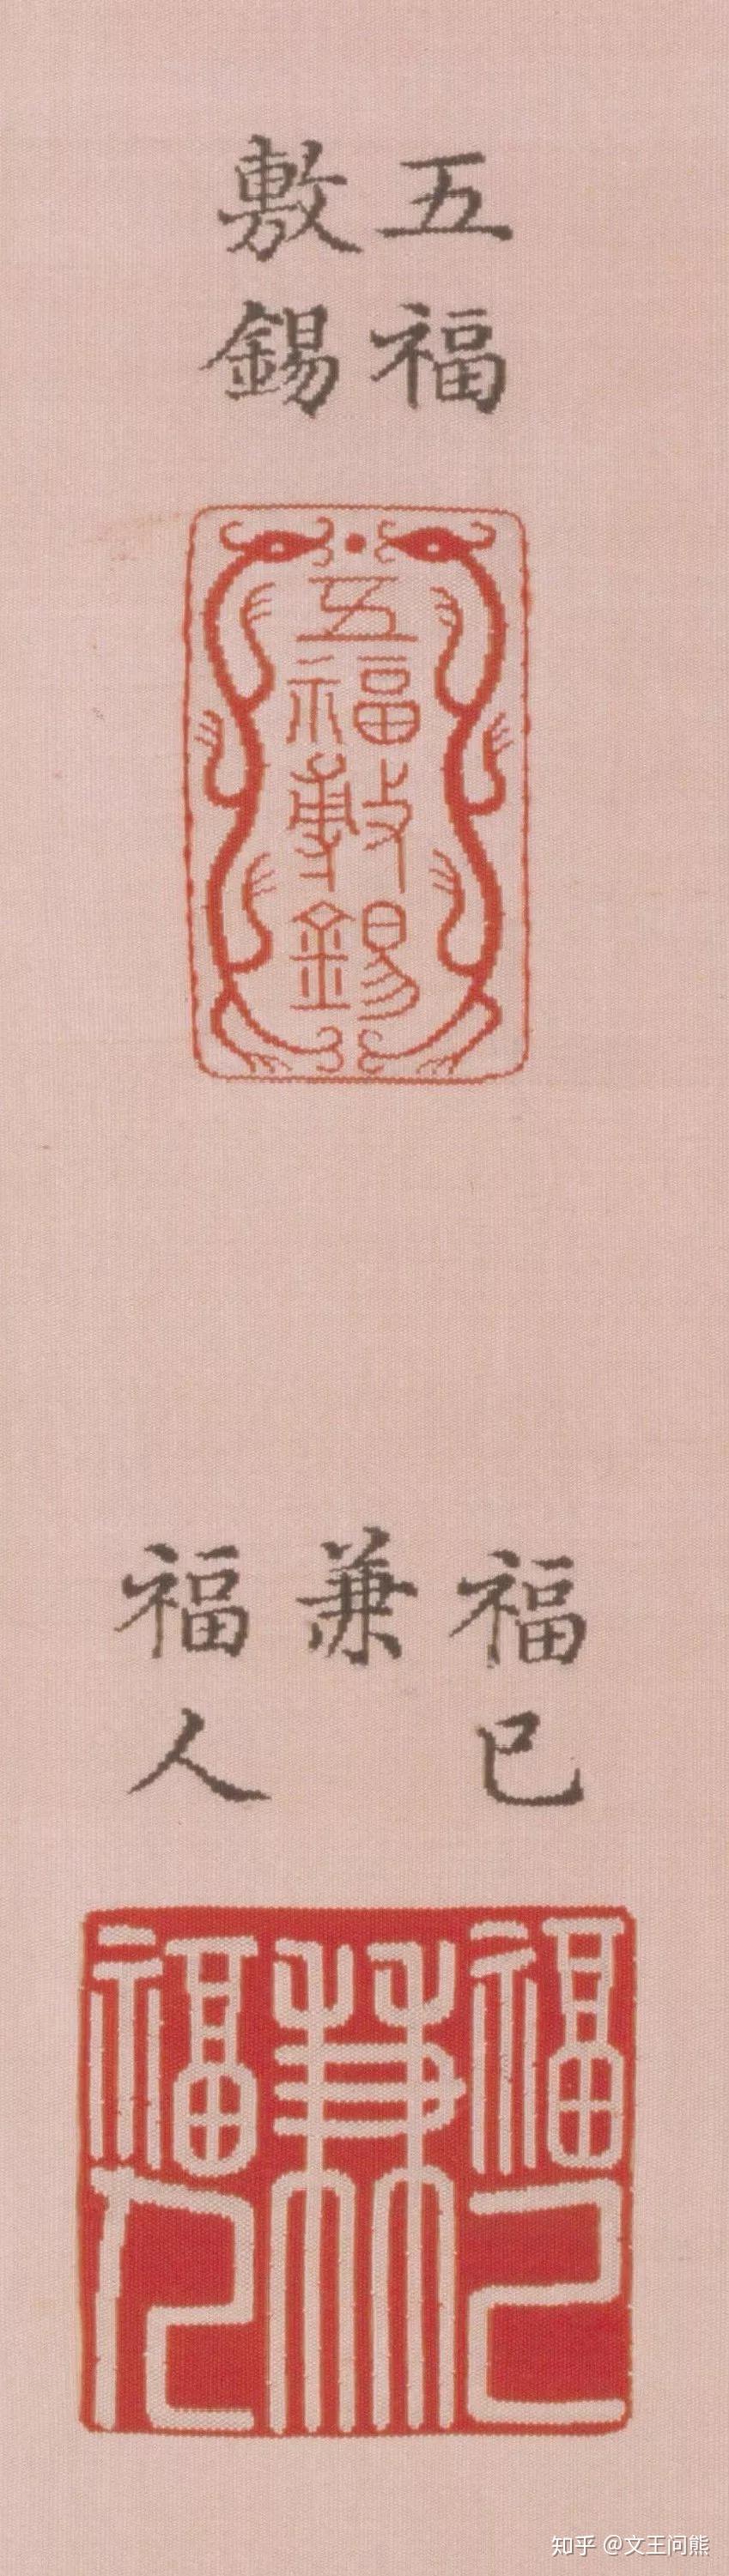 五福
敷錫
五
福
敷
錫
福己
兼
福人
福己
兼
福人
知乎 @文王问熊